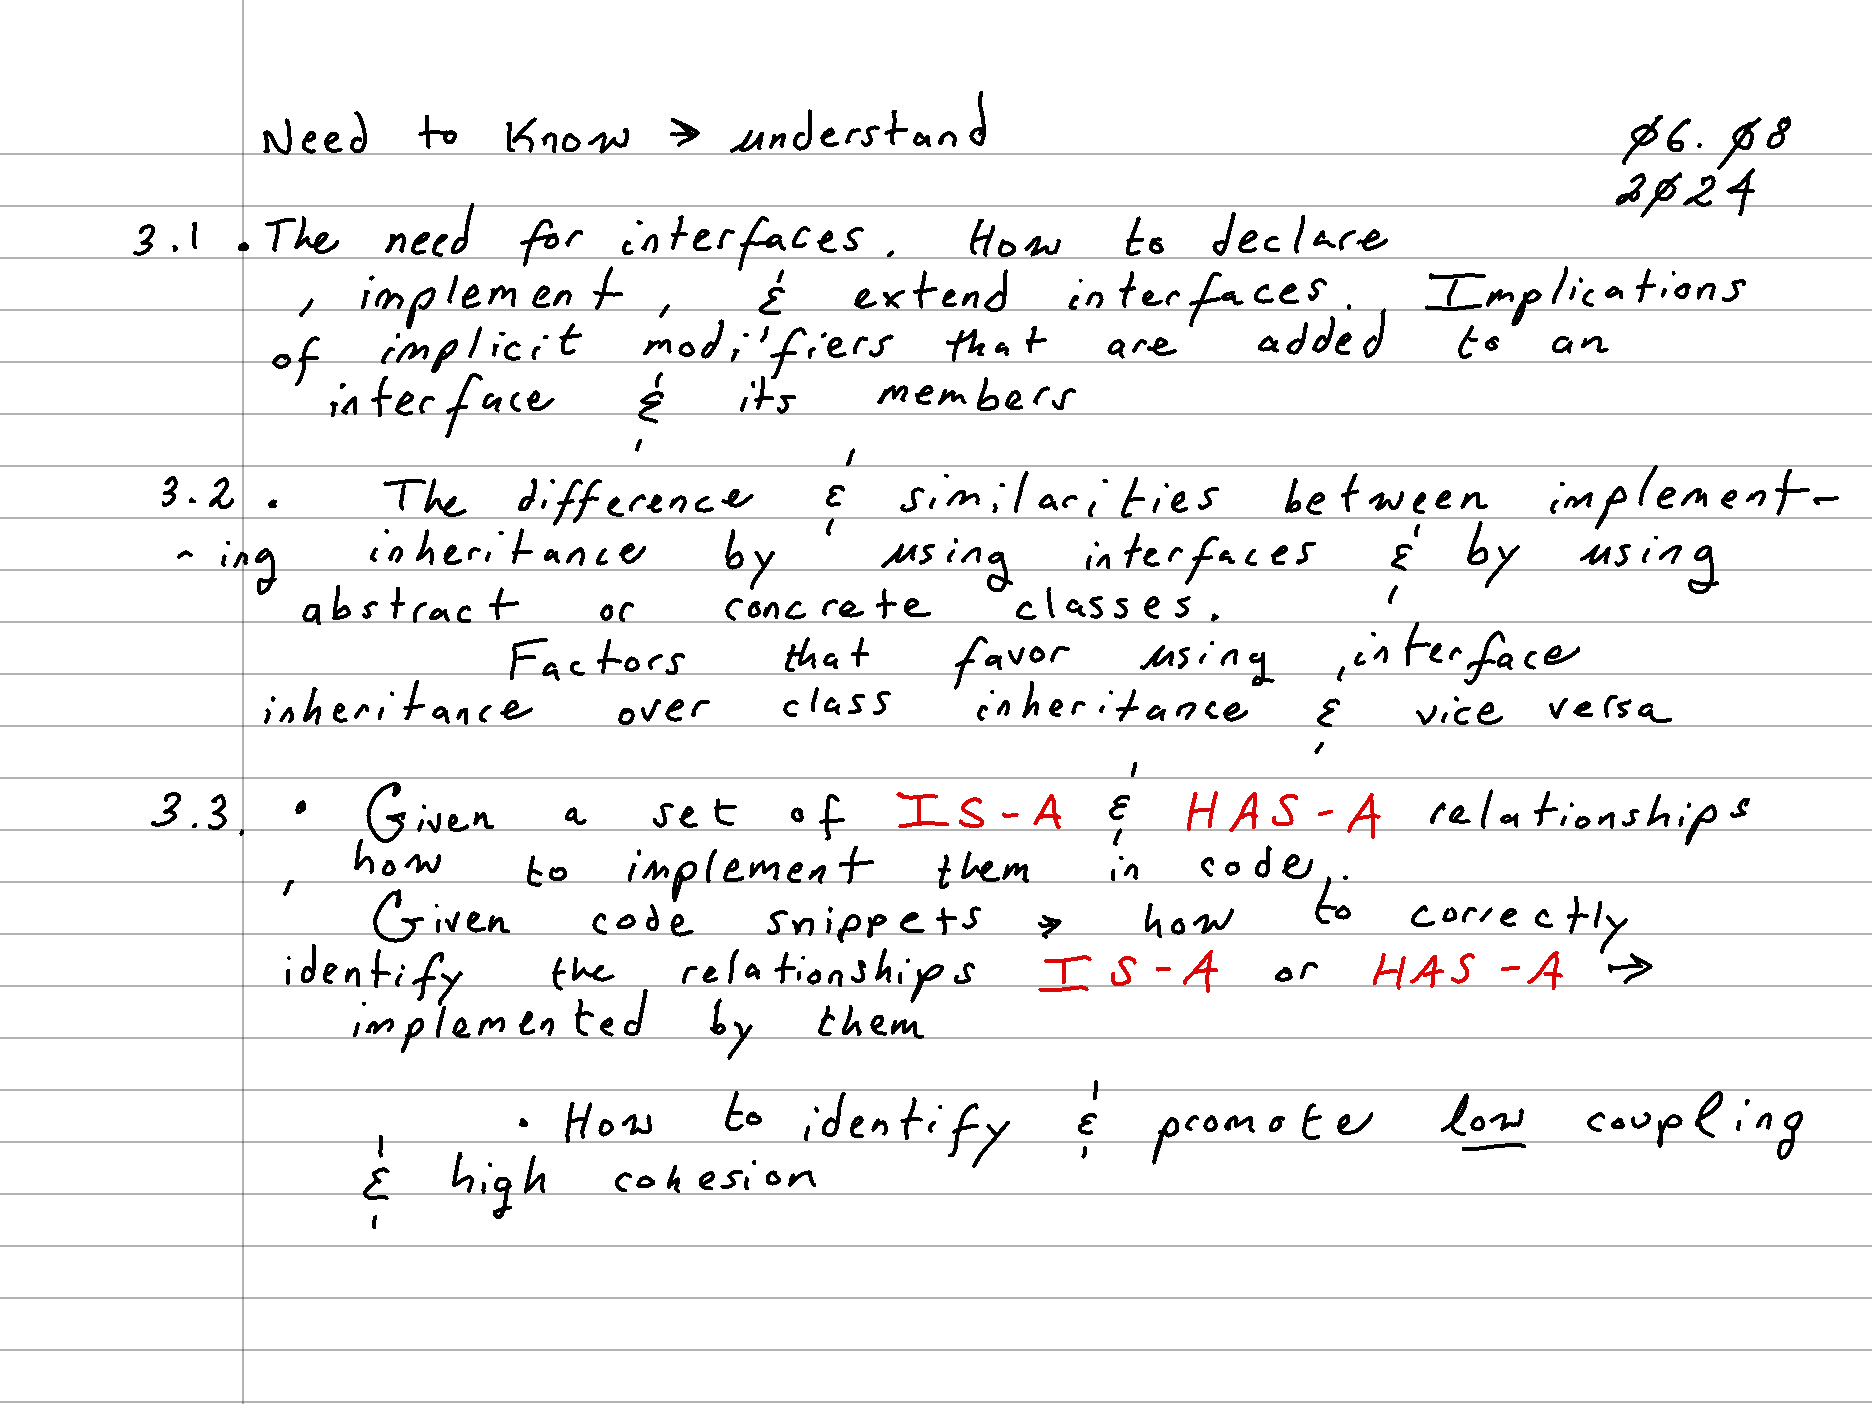 Need to Know → understand
Ø6. Ø8
2Ø24
3.1 . The need for interfaces. How to declare
, implement, & extend interfaces. Implications
of implicit modifiers that are added to an
interface & its members
3.2 . The difference & similarities between implement-
- ing inheritance by using interfaces & by using
abstract or concrete classes.
Factors that favor using interface
inheritance over class inheritance & vice versa
3.3. • Given a set of IS-A & HAS-A relationships
, how to implement them in code.
Given code snippets → how to correctly
identify the relationships IS-A or HAS-A →
implemented by them
• How to identify & promote low coupling
& high cohesion